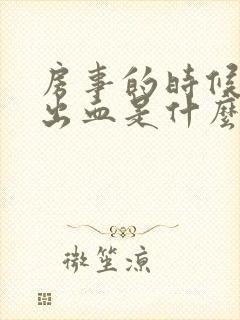 房事的時候
出血是什麼
微笙涼